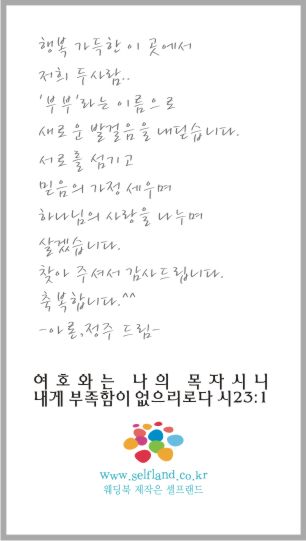 행복 가득한 이 곳에서
저희 두사람..
'부부'라는 이름으로
새로운 발걸음을 내딛습니다.
서로를 섬기고
믿음의 가정 세우며
하나님의 사랑을 나누며
살겠습니다.
찾아 주셔서 감사드립니다.
축복합니다.^^
-아론,정주 드림-
여호와는 나의 목자시니
내게 부족함이 없으리로다 시23:1
www.selfland.co.kr
웨딩북 제작은 셀프랜드